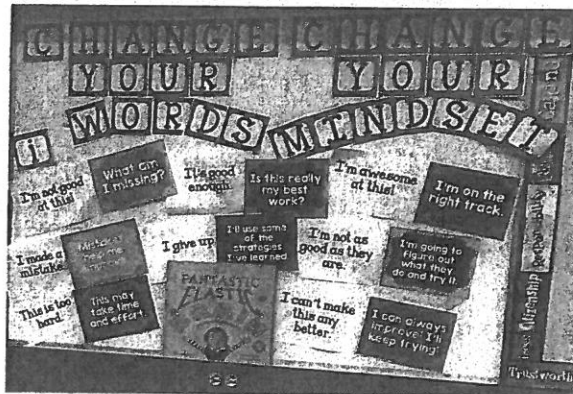 CHANGE CHANGE
YOUR YOUR
WORDS MINDSET
I'm not good
at this!
What am
I missing?
It's good
enough.
Is this really
my best
work?
I'm awesome
at this!
I'm on the
right track.
I made a
mistake.
Mistakes
help me
I give up.
I'll use some
of the
strategies
I've learned.
I'm not as
good as they
are.
I'm going to
figure out
what they
do and try it.
This is too
hard.
This may
take time
and effort.
FANTASTIC
ELASTIC
I can't make
this any
better.
I can always
improve! I'll
keep trying!
Responsibility
Citizenship
Trustworth